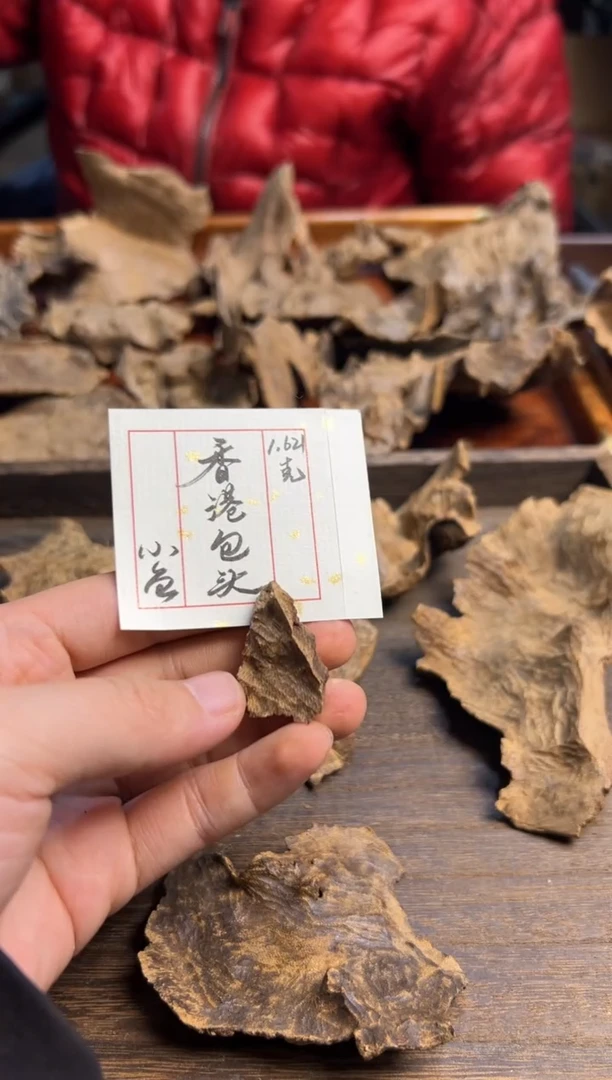 1.62克
香港包头
小鱼